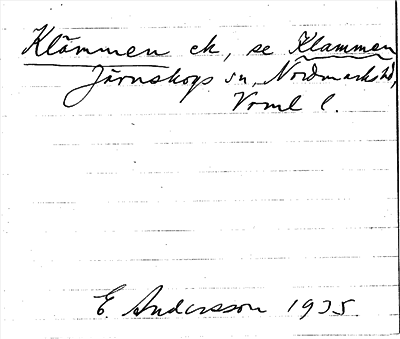 Klämmen ek, se Klammen
Järnskogs sn, Nordmarks hd,
Vrml l.
E. Andersson 1935